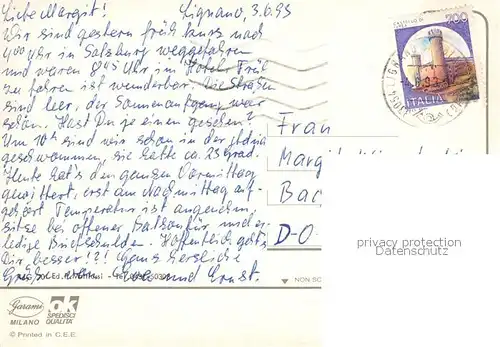 Liebe Margit! Lignano, 3.6.93
Wir sind gestern früh kurz nach
4 00 Uhr in Salzburg weggefahren
und waren 8 45 Uhr im Hotel. Früh
zu fahren ist wunderbar. Die Straßen
sind leer, der Sonnenaufgang war
schön. Hast Du je einen gesehen?
Um 10 sind wir schon in der Adria
geschwommen, sie hatte ca. 23 Grad.
Heute hat's den ganzen Vormittag
gewittert, erst am Nachmittag auf-
gehört. Temperatur ist angenehm,
sitze bei offener Balkontür und er-
ledige Briefschulden. Hoffentlich geht's
Dir besser!?! Ganz herzliche
Grüße von und Ernst.
700
ITALIA
Frau
Margit
Bad
D-O
privacy protection
Datenschutz
NON SC
Garami
MILANO
ok
SPEDISCI
QUALITÀ
© Printed in C.E.E.